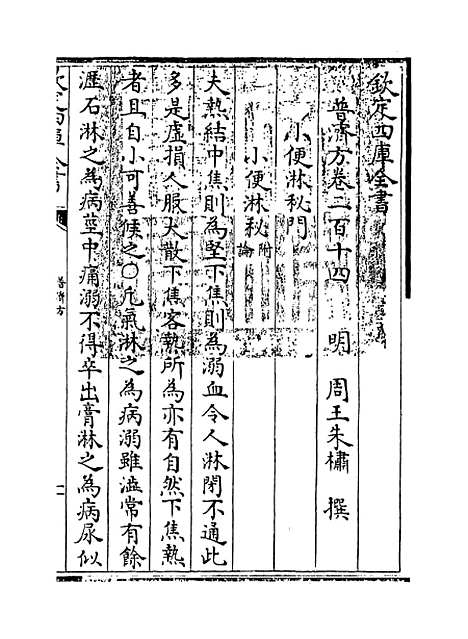 欽定四庫全書
普濟方卷二百十四 明 周王朱橚 撰
小便淋秘門
小便淋秘附論
夫熱結中焦則為堅下焦則為溺血令人淋閉不通此
多是虛損人服大散下焦客熱所為亦有自然下焦熱
者且自小可善候之〇凡氣淋之為病溺雖澁常有餘
瀝石淋之為病莖中痛溺不得卒出膏淋之為病尿似
普濟方